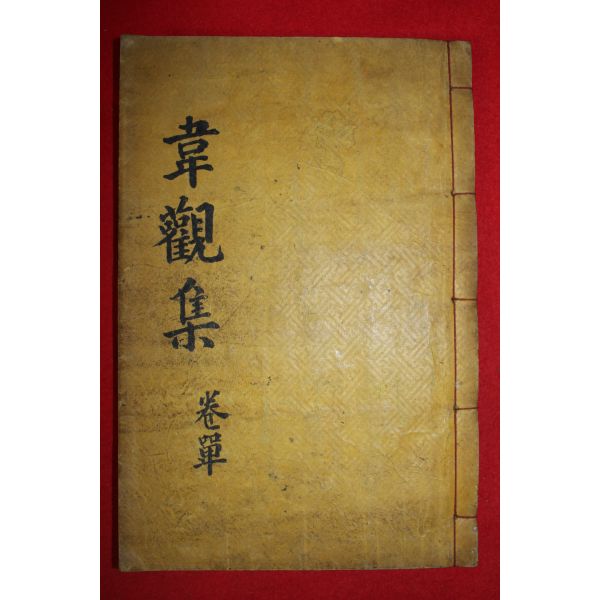 韋觀集
卷單